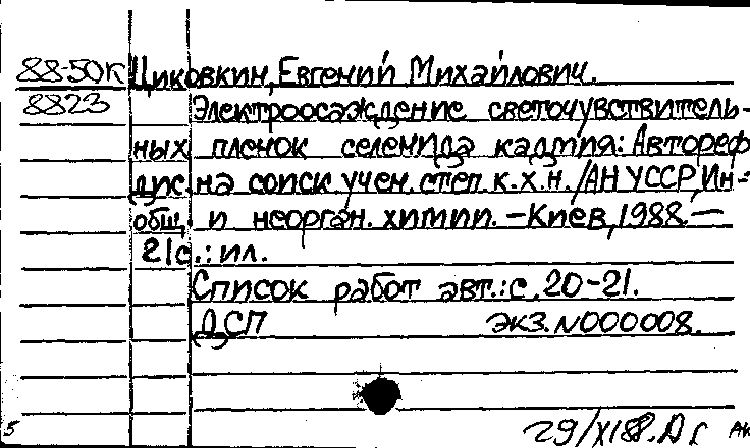 88-50К Циковкин, Евгений Михайлович.
8823 Электроосаждение светочувствитель-
ных пленок селенида кадмия: Автореф
дис. на соиск. учен. степ. к.х.н./АН УССР, Ин-т
общ. и неорган. химии. – Киев, 1988. –
21с.: ил.
Список работ авт.: с. 20-21.
ДСП экз. N000008.
5 29/XI 88.